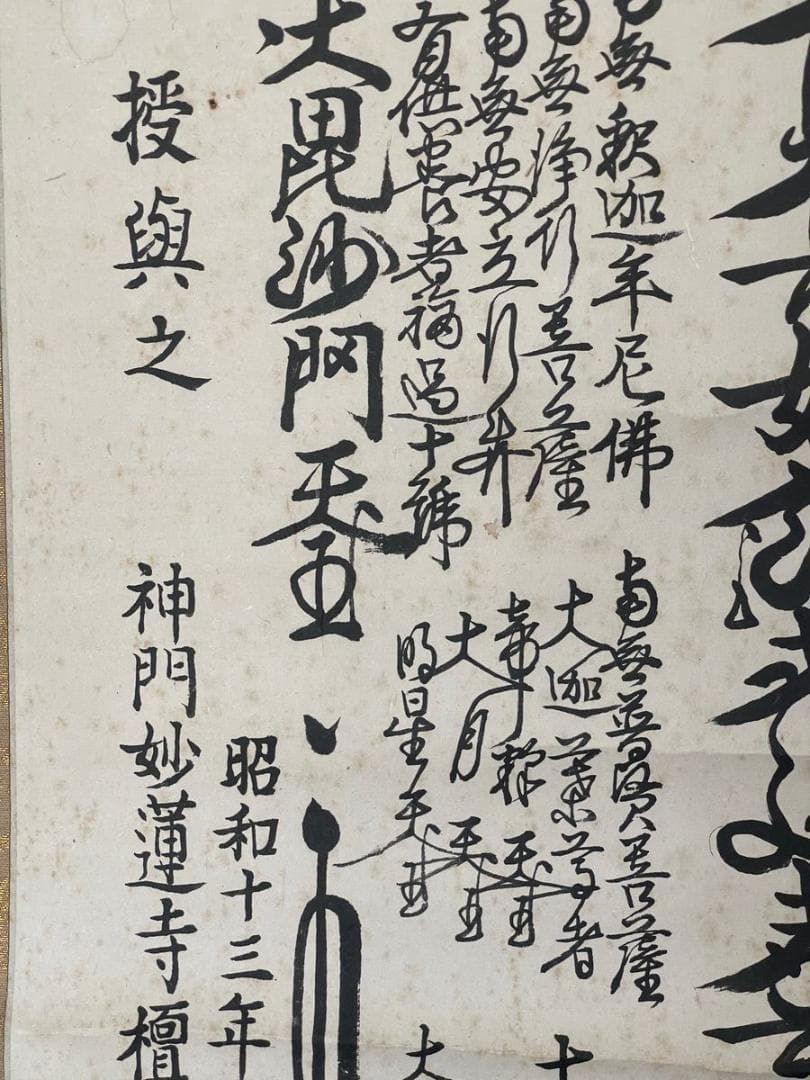 南無釈迦牟尼佛
南無浄行菩薩
南無安立行𦬇
有供養者福過十號
大毘沙門天王
南無普賢菩薩
大迦葉尊者
帝釈天王
大月天王
明星天王
十
大
昭和十三年
授與之
神門妙蓮寺檀